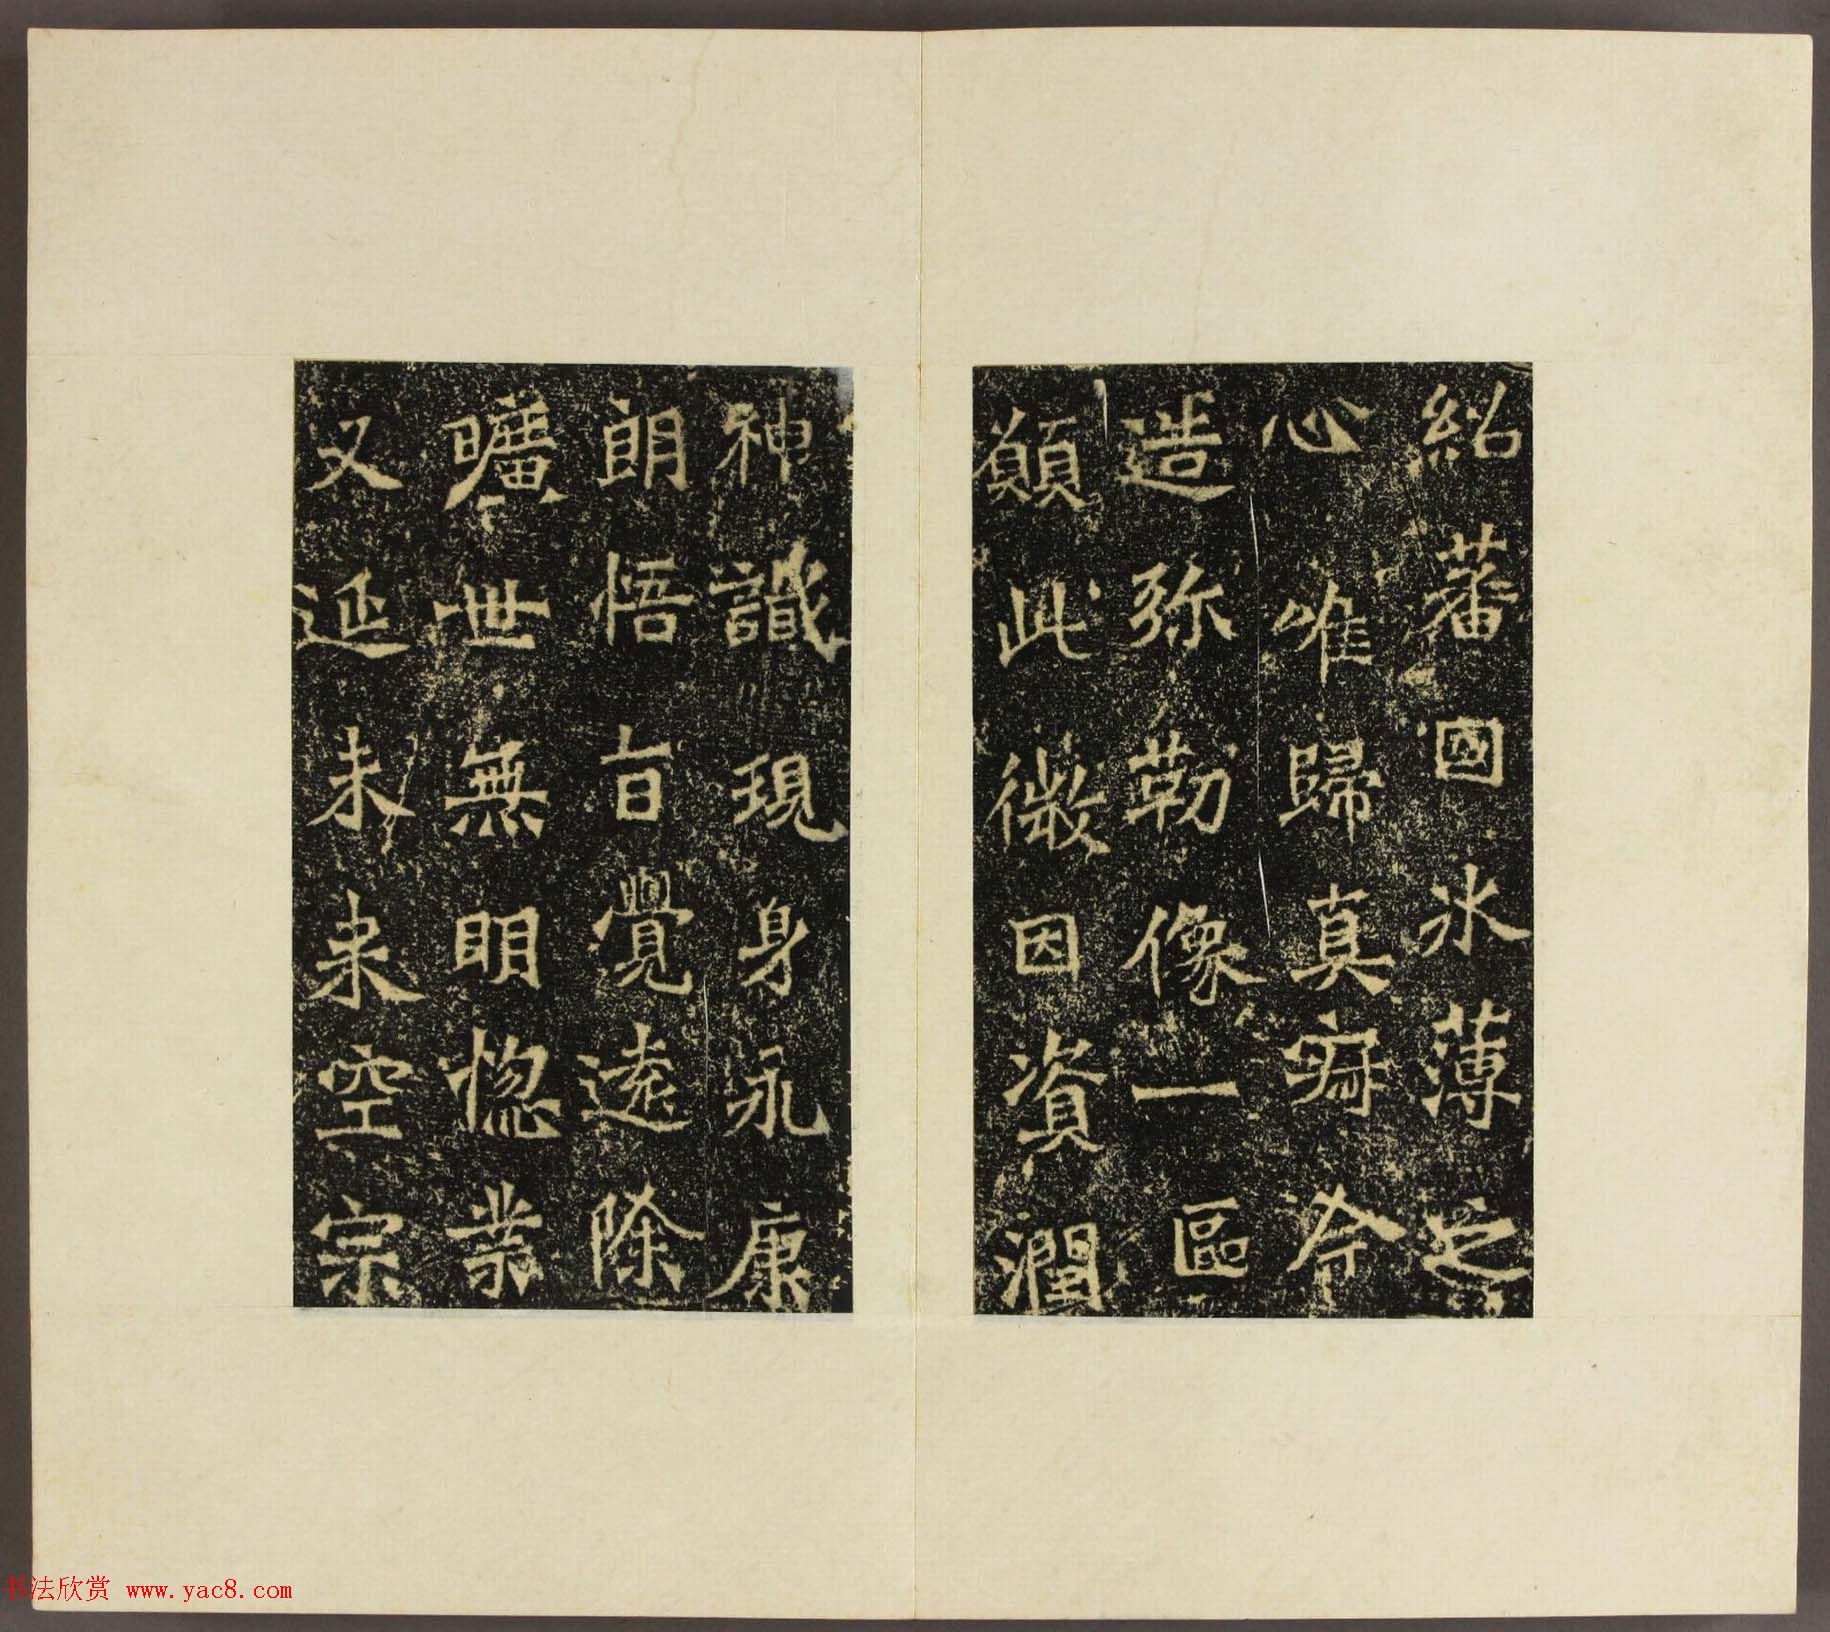 紹蕃國冰薄之
心唯歸真寂今
造弥勒像一區
願此微因資潤
神識現身永康
朗悟旨覺遠除
曠世無明惚業
又延未来空宗
书法欣赏 www.yac8.com